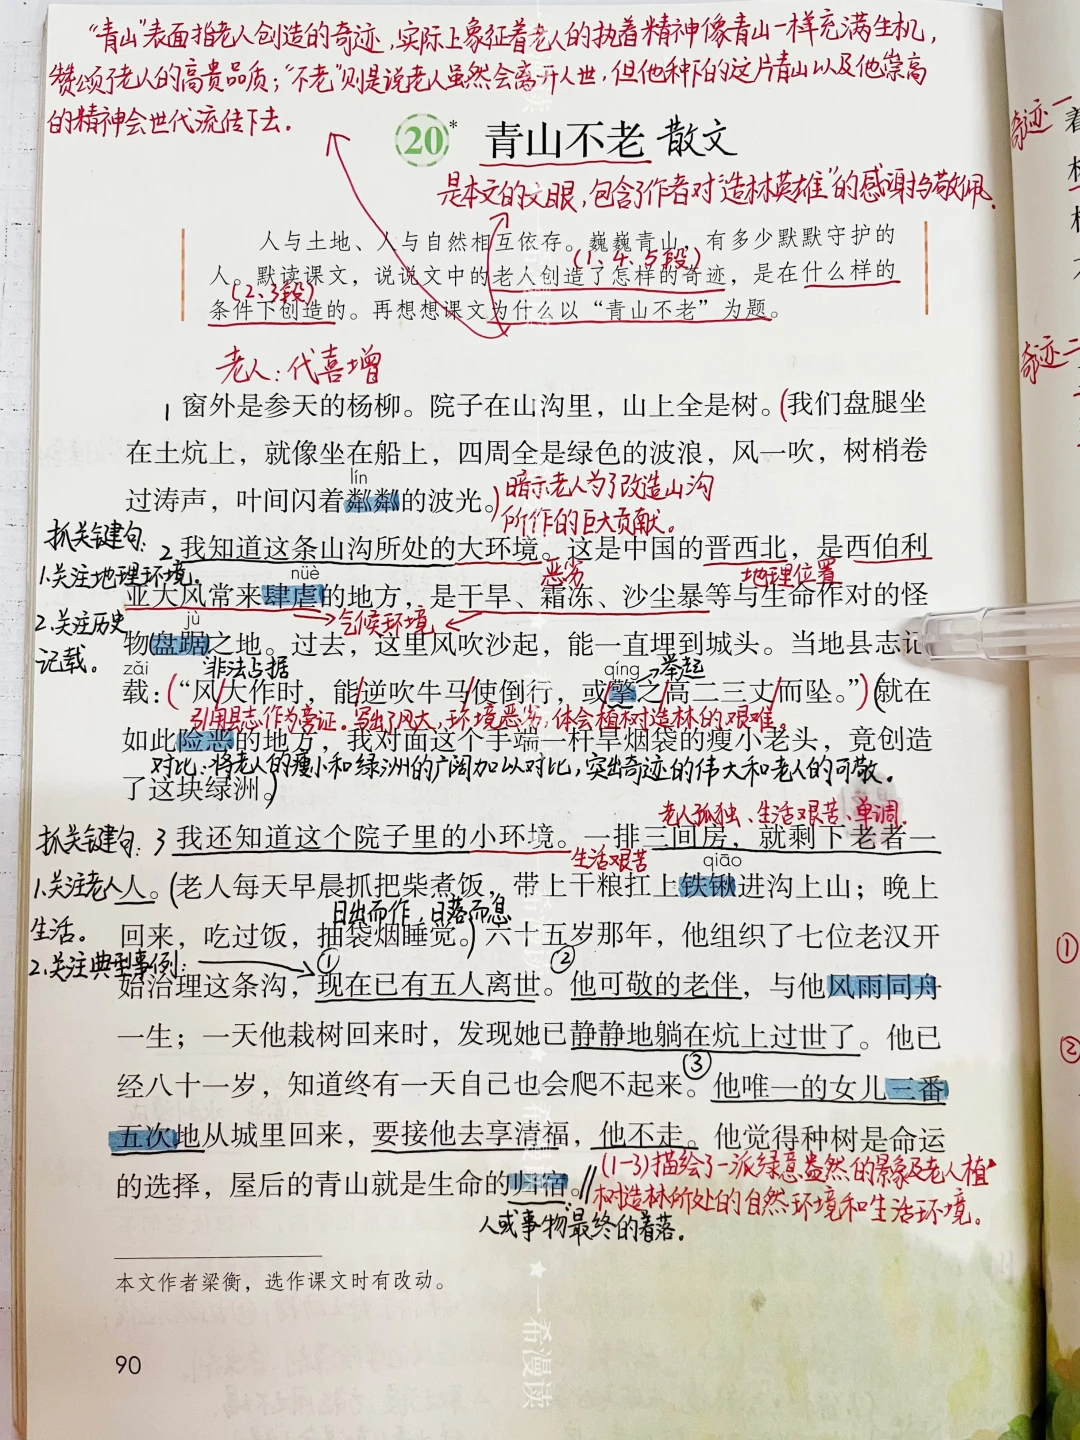 “青山”表面指老人创造的奇迹,实际上象征着老人的执着精神像青山一样充满生机,
赞颂了老人的高贵品质;“不老”则是说老人虽然会离开人世,但他种下的这片青山以及他崇高
的精神会世代流传下去.
20* 青山不老 散文
是本文的文眼,包含了作者对“造林英雄”的感谢与敬佩.
人与土地、人与自然相互依存。巍巍青山,有多少默默守护的
(1、4、5段)
人。默读课文,说说文中的老人创造了怎样的奇迹,是在什么样的
(2、3段)
条件下创造的。再想想课文为什么以“青山不老”为题。
老人:代喜增
1 窗外是参天的杨柳。院子在山沟里,山上全是树。(我们盘腿坐
在土炕上,就像坐在船上,四周全是绿色的波浪,风一吹,树梢卷
lín
过涛声,叶间闪着粼粼的波光。)
暗示老人为了改造山沟
所作的巨大贡献。
抓关键句:
2 我知道这条山沟所处的大环境。这是中国的晋西北,是西伯利
1.关注地理环境.
nüè
恶劣
地理位置
亚大风常来肆虐的地方,是干旱、霜冻、沙尘暴等与生命作对的怪
2.关注历史
记载。
jù
气候环境
物盘踞之地。过去,这里风吹沙起,能一直埋到城头。当地县志记
zǎi
非法占据
qíng
举起
载:(“风/大作时,能/逆吹牛马/使倒行,或/擎之/高二三丈/而坠。”)(就在
引用县志作为旁证.写出了风大,环境恶劣,体会植树造林的艰难。
如此险恶的地方,我对面这个手端一杆旱烟袋的瘦小老头,竟创造
对比:将老人的瘦小和绿洲的广阔加以对比,突出奇迹的伟大和老人的可敬.
了这块绿洲。)
老人孤独、生活艰苦、单调.
抓关键句:
3 我还知道这个院子里的小环境。一排三间房,就剩下老者一
1.关注老人
生活。
生活艰苦
qiāo
人。(老人每天早晨抓把柴煮饭,带上干粮扛上铁锹进沟上山;晚上
日出而作,日落而息
回来,吃过饭,抽袋烟睡觉。)六十五岁那年,他组织了七位老汉开
2.关注典型事例:
①
②
始治理这条沟,现在已有五人离世。他可敬的老伴,与他风雨同舟
一生;一天他栽树回来时,发现她已静静地躺在炕上过世了。他已
③
经八十一岁,知道终有一天自己也会爬不起来。他唯一的女儿三番
五次地从城里回来,要接他去享清福,他不走。他觉得种树是命运
的选择,屋后的青山就是生命的归宿。//
(1-3)描绘了一派绿意盎然的景象及老人植
树造林所处的自然环境和生活环境。
人或事物最终的着落.
本文作者梁衡,选作课文时有改动。
90
奇迹一
着
奇迹二
①
②
一希漫读